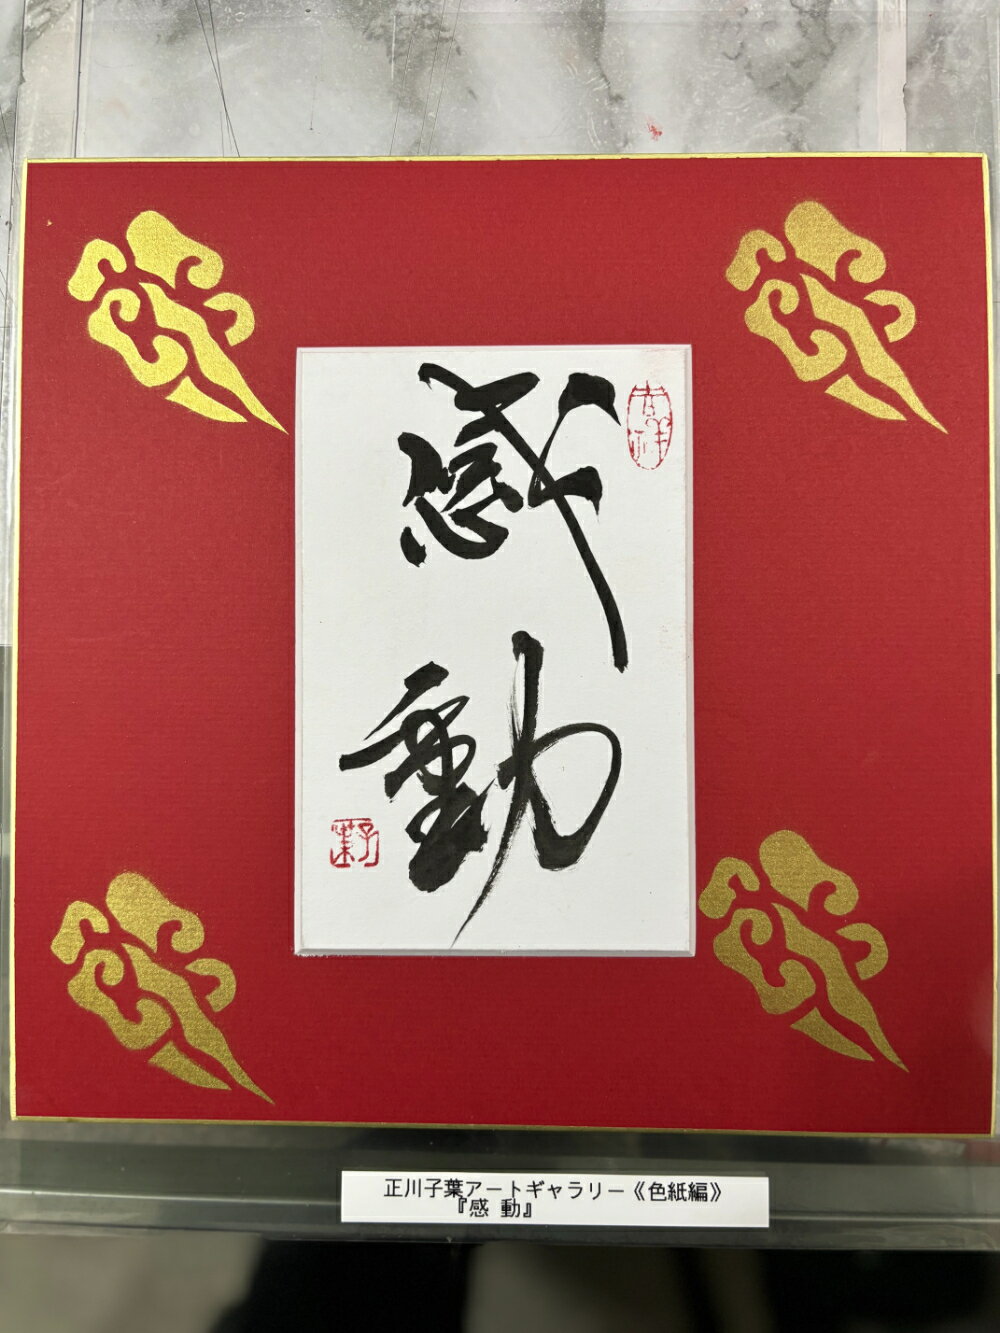 感動
吉祥
子葉
正川子葉アートギャラリー《色紙編》
『感 動』